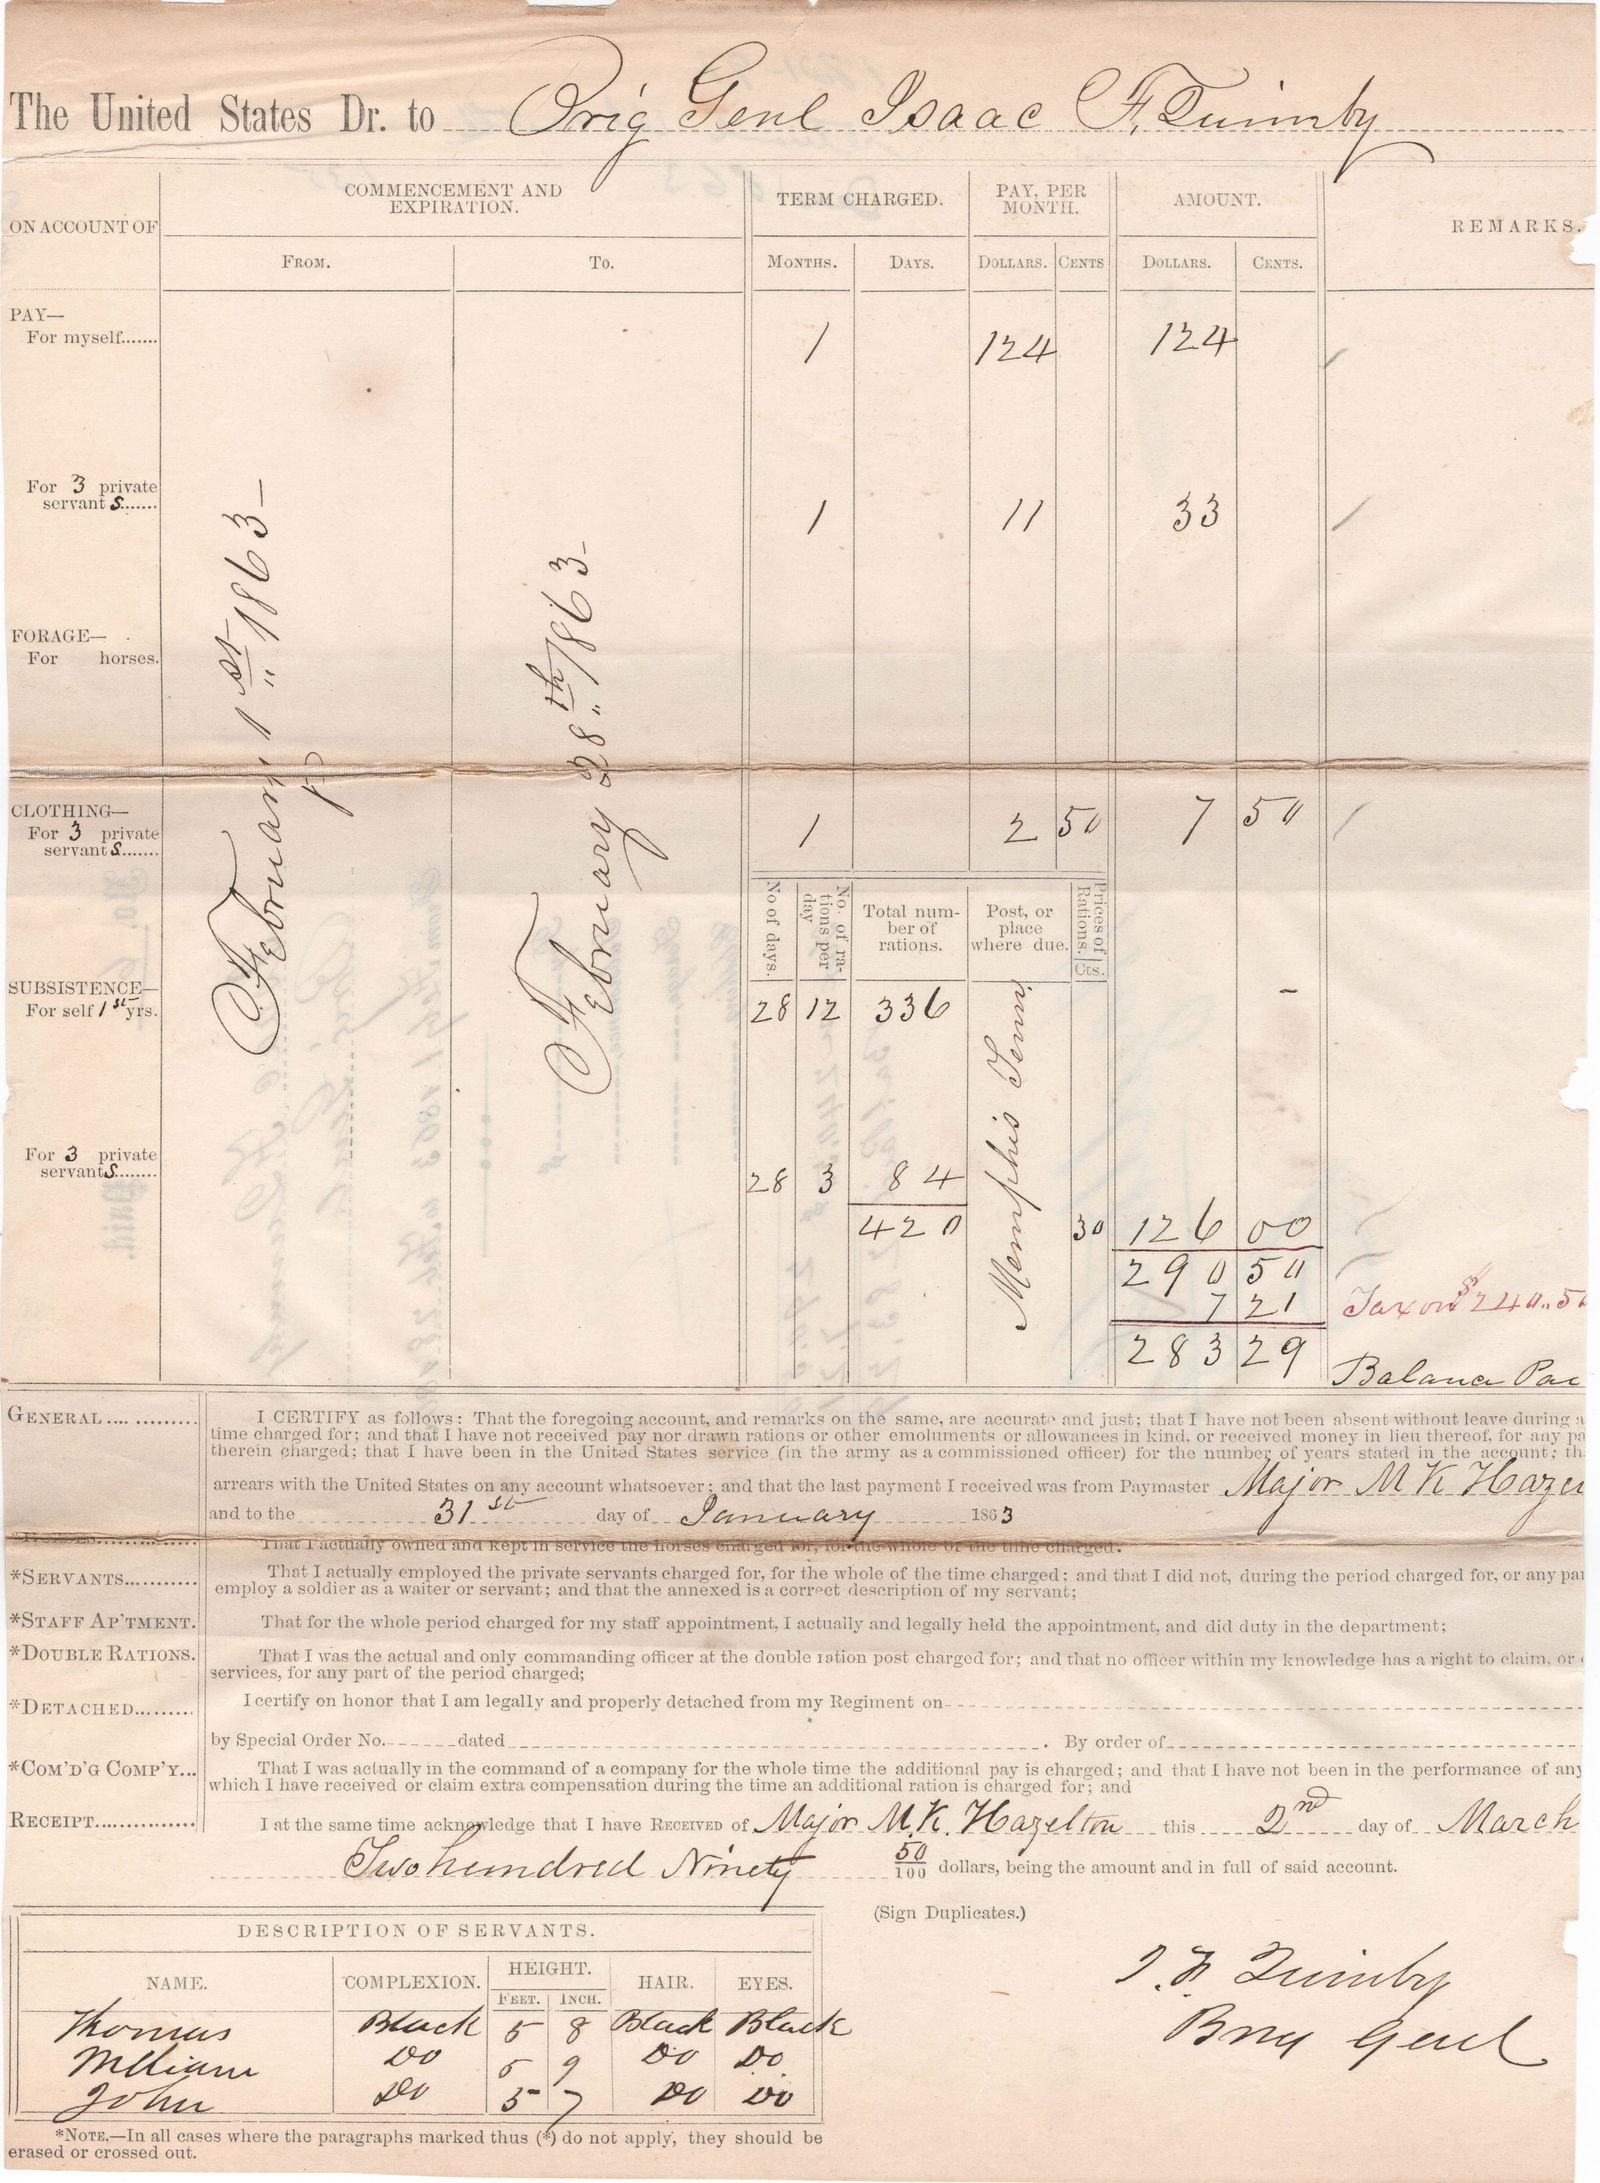 The United States Dr. to Brig Genl Isaac F. Quimby
ON ACCOUNT OF
COMMENCEMENT AND EXPIRATION.
TERM CHARGED.
PAY, PER MONTH.
AMOUNT.
REMARKS.
FROM.
TO.
MONTHS.
DAYS.
DOLLARS.
CENTS
DOLLARS.
CENTS.
February 1st „ 1863 –
February 28th „ 1863 –
PAY—
For myself....... 1 124 124
For 3 private
servants....... 1 11 33
FORAGE—
For horses.
CLOTHING—
For 3 private
servants....... 1 2 50 7 50
No of days.
No. of rations per day
Total number of rations.
Post, or place where due.
Prices of Rations.
Cts.
SUBSISTENCE—
For self 1st yrs. 28 12 336
Memphis Tenn
For 3 private
servants........ 28 3 84
420 30 126 00
290 50
7 21 Tax on $240.. 5
283 29 Balance
GENERAL .... ..........
I CERTIFY as follows: That the foregoing account, and remarks on the same, are accurate and just; that I have not been absent without leave during
time charged for; and that I have not received pay nor drawn rations or other emoluments or allowances in kind, or received money in lieu thereof, for any pa
therein charged; that I have been in the United States service (in the army as a commissioned officer) for the number of years stated in the account; th
arrears with the United States on any account whatsoever; and that the last payment I received was from Paymaster Major M K Haze
and to the 31st day of January 1863
That I actually owned and kept in service the horses charged for, for the whole of the time charged.
*SERVANTS...........
That I actually employed the private servants charged for, for the whole of the time charged; and that I did not, during the period charged for, or any par
employ a soldier as a waiter or servant; and that the annexed is a correct description of my servant;
*STAFF AP'TMENT.
That for the whole period charged for my staff appointment, I actually and legally held the appointment, and did duty in the department;
*DOUBLE RATIONS.
That I was the actual and only commanding officer at the double ration post charged for; and that no officer within my knowledge has a right to claim, or
services, for any part of the period charged;
*DETACHED.........
I certify on honor that I am legally and properly detached from my Regiment on
by Special Order No. dated . By order of
*COM'D'G COMP'Y...
That I was actually in the command of a company for the whole time the additional pay is charged; and that I have not been in the performance of any
which I have received or claim extra compensation during the time an additional ration is charged for; and
RECEIPT...............
I at the same time acknowledge that I have RECEIVED of Major M. K. Hazelton this 2nd day of March
Two hundred Ninety 50/100 dollars, being the amount and in full of said account.
(Sign Duplicates.)
I. F. Quimby
Brig Genl
DESCRIPTION OF SERVANTS.
NAME. COMPLEXION. HEIGHT. HAIR. EYES.
FEET. INCH.
Thomas Black 5 8 Black Black
William Do 5 9 Do Do
John Do 5 7 Do Do
*NOTE.—In all cases where the paragraphs marked thus (*) do not apply, they should be
erased or crossed out.